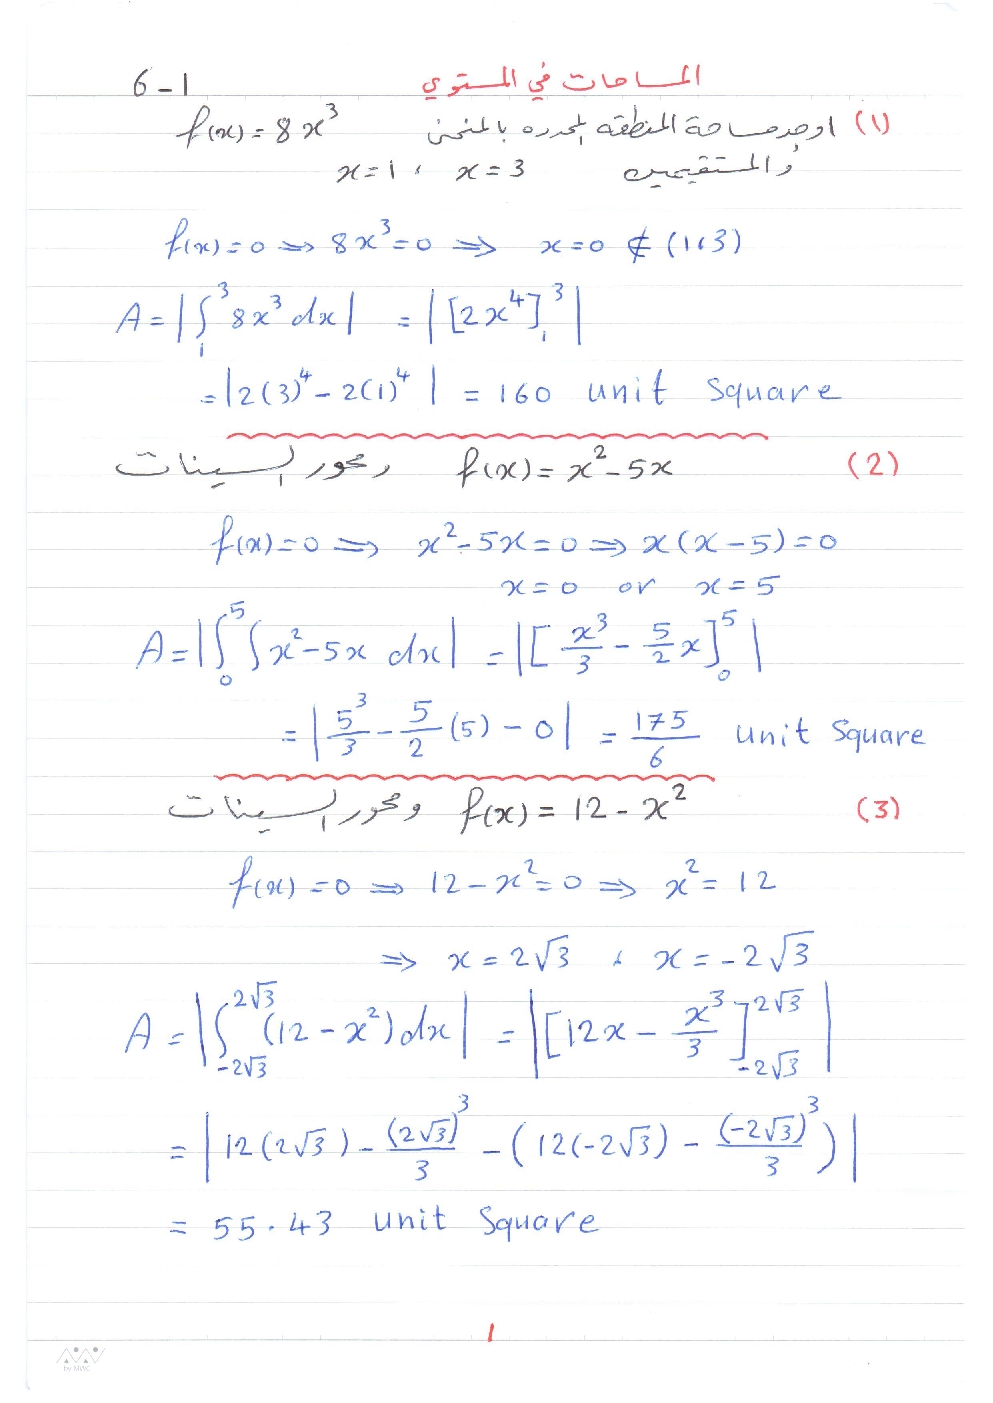 المساحات في المستوي 6-1
(١) اوجد مساحة المنطقه المحدده بالمنحنى f(x) = 8x³
والمستقيمين x=1 ، x=3
f(x)=0 ⇒ 8x³=0 ⇒ x=0 ∉ (1،3)
A = |∫₁³ 8x³ dx| = |[2x⁴]₁³|
= |2(3)⁴ - 2(1)⁴| = 160 unit square
(2) f(x) = x² - 5x ومحور السينات
f(x)=0 ⇒ x² - 5x = 0 ⇒ x(x-5)=0
x=0 or x=5
A = |∫₀⁵ ∫x² - 5x dx| = |[x³/3 - 5/2 x]₀⁵|
= |5³/3 - 5/2 (5) - 0| = 175/6 unit square
(3) f(x) = 12 - x² ومحور السينات
f(x) = 0 ⇒ 12 - x² = 0 ⇒ x² = 12
⇒ x = 2√3 ، x = -2√3
A = |∫_{-2√3}^{2√3} (12 - x²) dx| = |[12x - x³/3]_{-2√3}^{2√3}|
= |12(2√3) - (2√3)³/3 - (12(-2√3) - (-2√3)³/3)|
= 55.43 unit square
1
by MWC